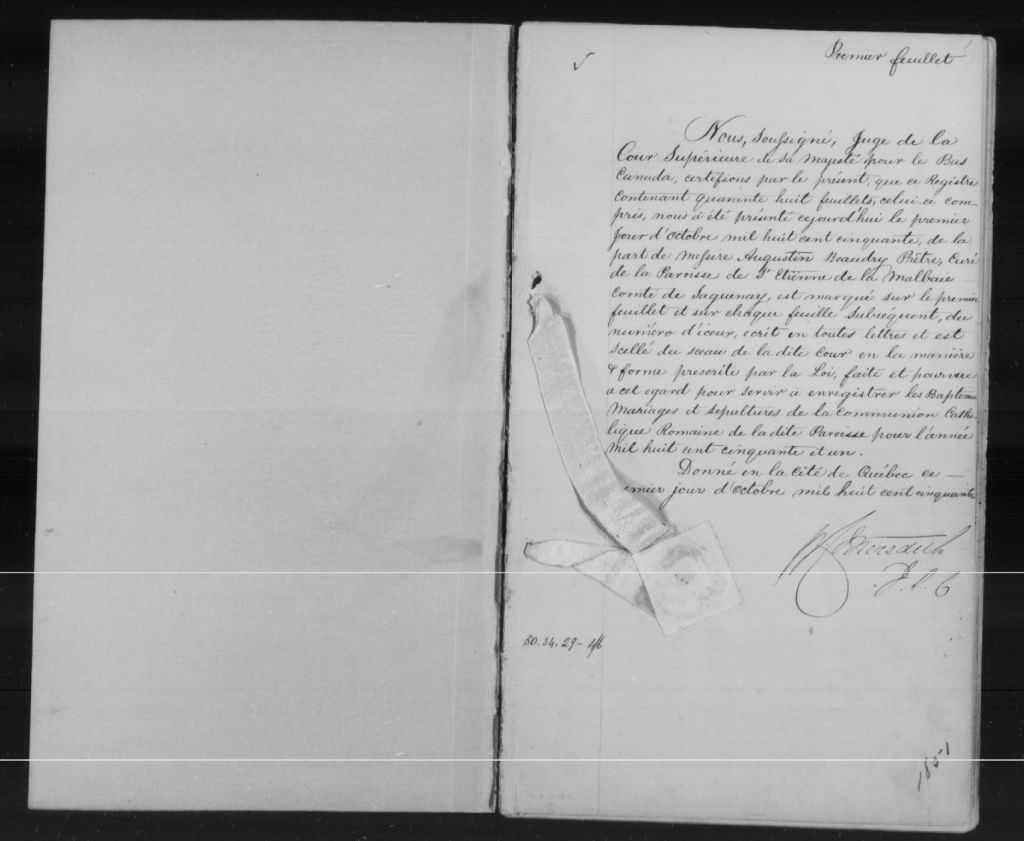 Premier feuillet
Nous, Soussigné, Juge de la
Cour Supérieure de sa Majesté pour le Bas
Canada, certifions par le présent, que ce Registre
Contenant quarante huit feuillets, celui ci com-
pris, nous a été présenté cejourd'hui le premier
Jour d'Octobre mil huit cent cinquante, de la
part de Messire Augustin Beaudry Prêtre, Curé
de la Paroisse de St Etienne de la Malbaie
Comté de Saguenay, est marqué sur le premier
feuillet et sur chaque feuille Subséquent, du
numéro d'iceux, ecrit en toutes lettres et est
Scellé du sceau de la dite Cour en la manière
& forme prescrite par la Loi, faite et pourvue
a cet egard pour servir à enregistrer les Baptemes
Mariages et Sepultures de la Communion Catho-
lique Romaine de la dite Paroisse pour l'année
Mil huit cent cinquante et un.
Donné en la Cité de Québec ce —
emier jour d'Octobre mil huit cent cinquante
Meredith
J. S. C
50. 34. 29 - 46
1851